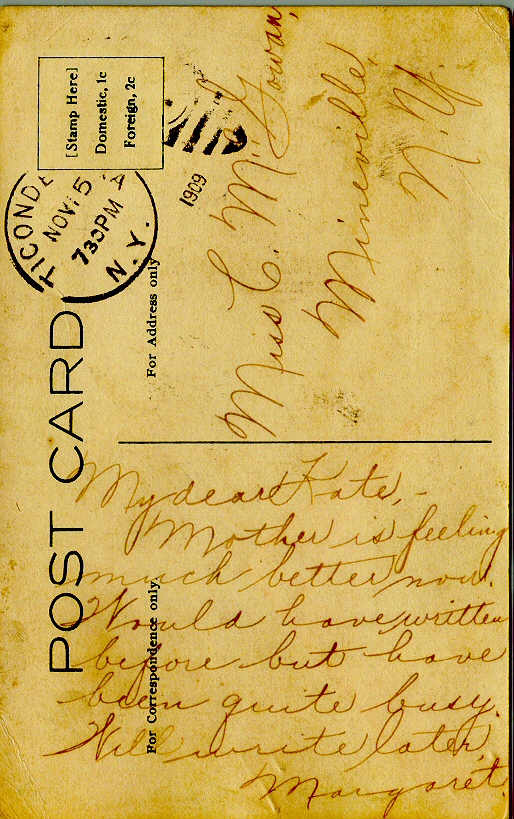 POST CARD
[Stamp Here]
Domestic, 1c
Foreign, 2c
TICONDE A
NOV 15
730PM
N.Y.
1909
For Address only
Miss C. McGowan,
Mineville,
N. Y.
For Correspondence only.
My dear Kate, -
Mother is feeling
much better now.
Would have written
before but have
been quite busy.
Will write later,
Margaret.